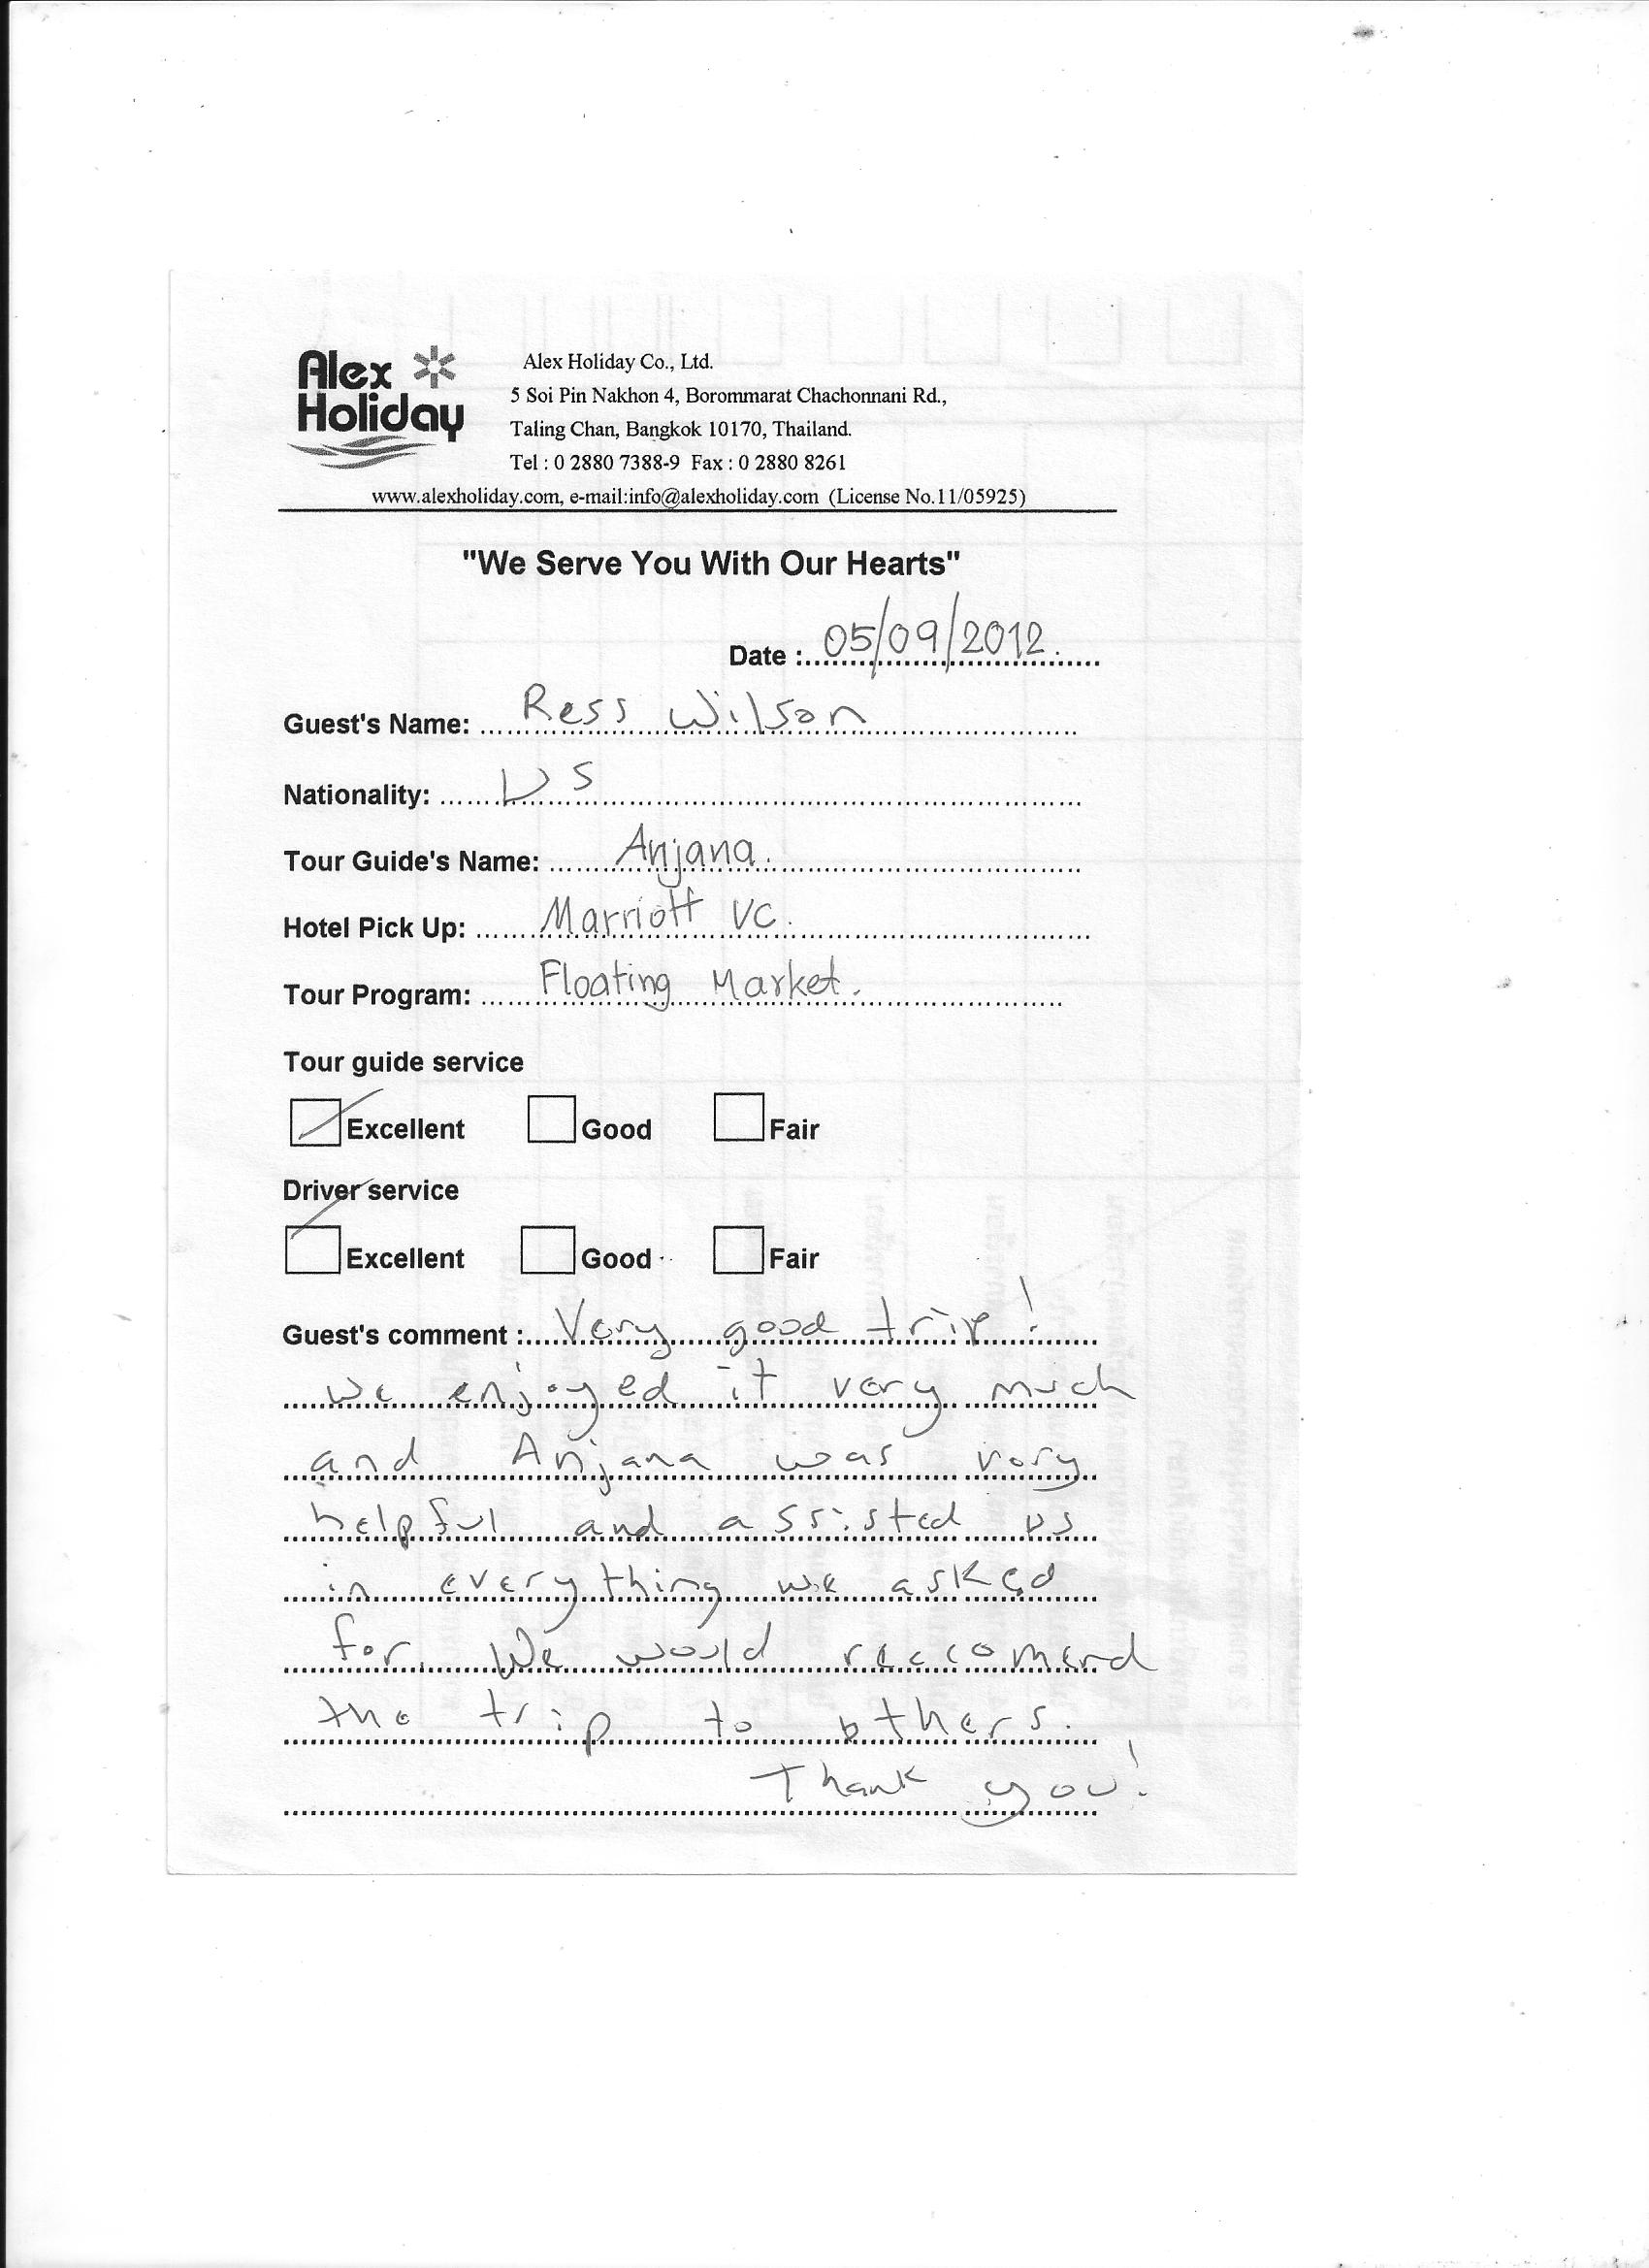 Alex
Holiday
Alex Holiday Co., Ltd.
5 Soi Pin Nakhon 4, Borommarat Chachonnani Rd.,
Taling Chan, Bangkok 10170, Thailand.
Tel : 0 2880 7388-9 Fax : 0 2880 8261
www.alexholiday.com, e-mail:info@alexholiday.com (License No.11/05925)
"We Serve You With Our Hearts"
Date : 05/09/2012.
Guest's Name: Ress Wilson
Nationality: US
Tour Guide's Name: Anjana.
Hotel Pick Up: Marriott VC.
Tour Program: Floating Market.
Tour guide service
Excellent Good Fair
Driver service
Excellent Good Fair
Guest's comment : Very good trip!
we enjoyed it very much
and Anjana was very
helpful and assisted us
in everything we asked
for. We would reccomend
the trip to others.
Thank you!